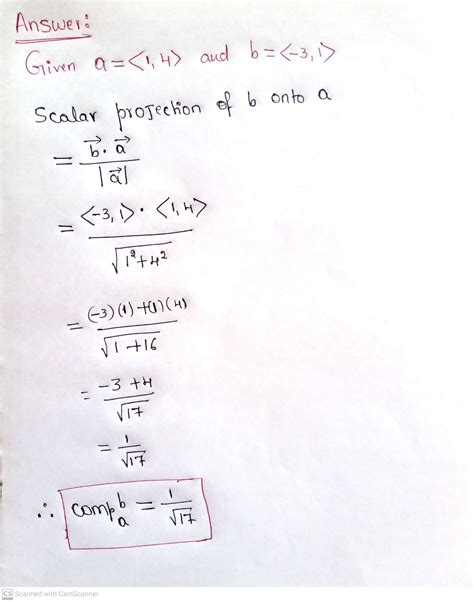 Answer:
Given a = <1, 4> and b = <-3, 1>
Scalar projection of b onto a
= b⃗ . a⃗ / |a⃗|
= <-3, 1> . <1, 4> / √(1² + 4²)
= (-3)(1) + (1)(4) / √(1 + 16)
= -3 + 4 / √17
= 1 / √17
∴ comp_a b = 1 / √17
CS Scanned with CamScanner